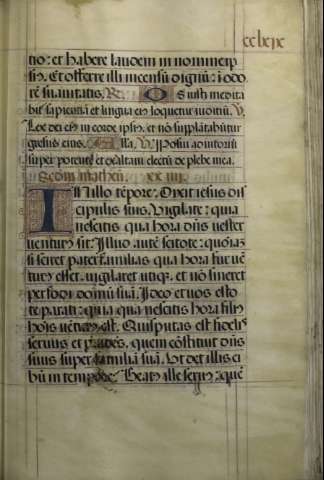 tio: et habere laudem in nomine ip
sius. Et offerre illi incensū dignū: i odo
rē suauitatis. R. Os iusti medita
bit sapientiā et lingua eiꝰ loquetur iudiciū. V.
Lex dei eiꝰ in corde ipsiꝰ: et nō supplātabūtur
gressus eius. Alla. V. Posui adiutoriū
super potentē et exaltaui electū de plebe mea.
Secdm matheū. xxiiij.
In illo tēpore. Dixit iesus dis
cipulis suis. Vigilate: quia
nescitis qua hora dn̄s vester
uenturus sit. Illud autē scitote: quoniā
si sciret paterfamilias qua hora fur uē
turus esset, uigilaret utiqꝫ, et nō sineret
perfodi domū suā. Ideo et uos esto
te parati: quia qua nescitis hora filiꝰ
hoīs uēturus est. Quis putas est fidelis
seruus et prudēs, quem cōstituit dn̄s
suus super familiā suā. Vt det illis ci
bū in tempore? Beatꝰ ille seruꝰ: quē